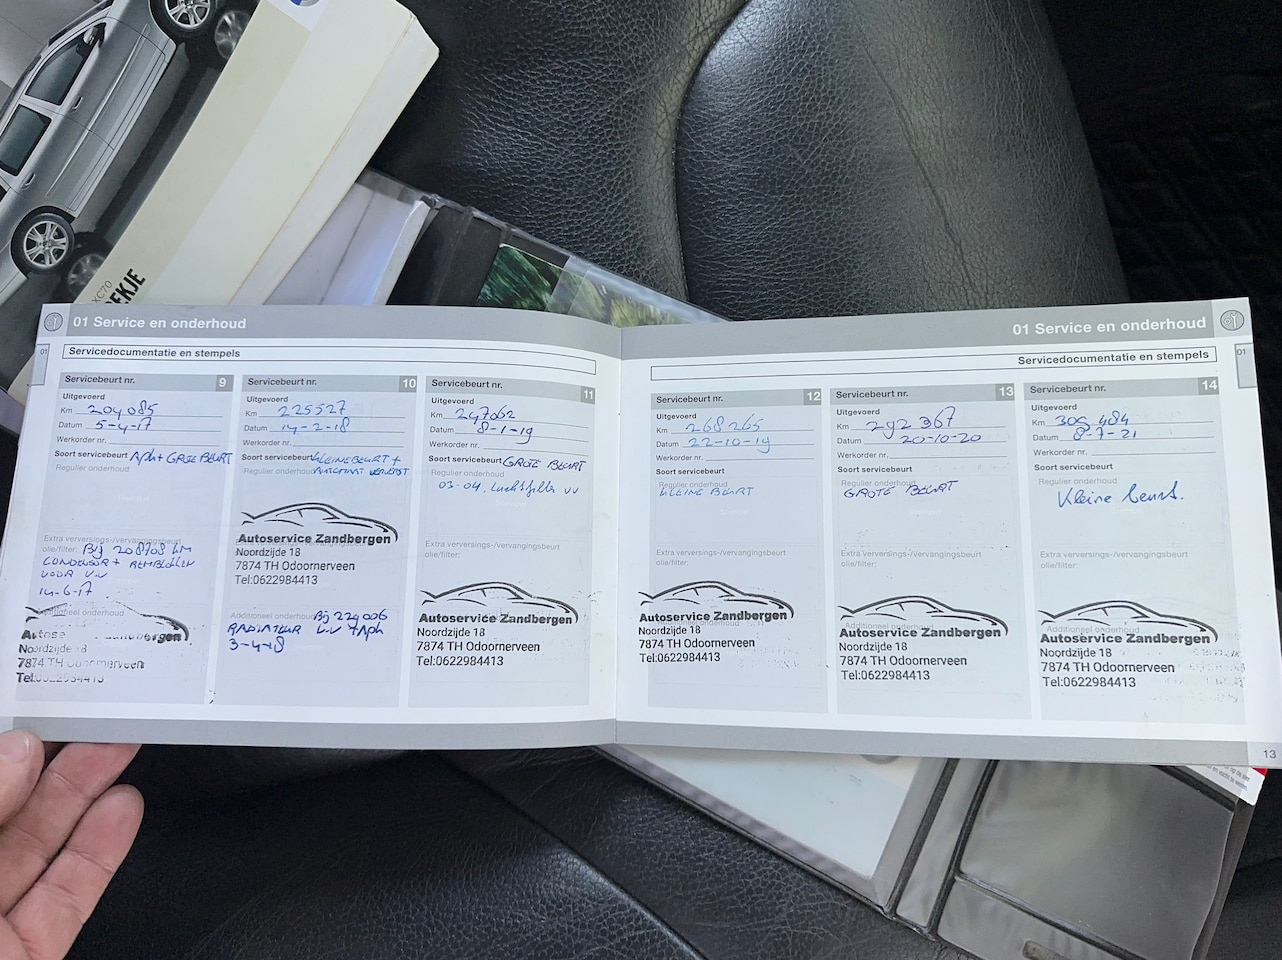 XC70
01 Service en onderhoud
01
Servicedocumentatie en stempels
Servicebeurt nr. 9
Uitgevoerd
Km 204085
Datum 5-4-17
Werkorder nr.
Soort servicebeurt Apk + GROTE BEURT
Regulier onderhoud
Extra verversings-/vervangingsbeurt
olie/filter: Bij 208708 KM
CONDENSOR + REMBLOKKEN
VOOR VV
14-6-17
Zandbergen
Noordzijde 18
7874 TH Odoornerveen
Servicebeurt nr. 10
Uitgevoerd
Km 225527
Datum 14-2-18
Werkorder nr.
Soort servicebeurt KLEINE BEURT +
AUTOMAAT VERVERST
Regulier onderhoud
Autoservice Zandbergen
Extra verversings-/vervangingsbeurt
olie/filter:
Noordzijde 18
7874 TH Odoornerveen
Tel:0622984413
Additioneel onderhoud Bij 229006
RADIATEUR V.V + Apk
3-4-18
Servicebeurt nr. 11
Uitgevoerd
Km 247062
Datum 8-1-19
Werkorder nr.
Soort servicebeurt GROTE BEURT
Regulier onderhoud
03-04. Luchtfilter VV
Extra verversings-/vervangingsbeurt
olie/filter:
Autoservice Zandbergen
Noordzijde 18
7874 TH Odoornerveen
Tel:0622984413
01 Service en onderhoud
01
Servicedocumentatie en stempels
Servicebeurt nr. 12
Uitgevoerd
Km 268265
Datum 22-10-19
Werkorder nr.
Soort servicebeurt
Regulier onderhoud
KLEINE BEURT
Extra verversings-/vervangingsbeurt
olie/filter:
Autoservice Zandbergen
Noordzijde 18
7874 TH Odoornerveen
Tel:0622984413
Servicebeurt nr. 13
Uitgevoerd
Km 292367
Datum 20-10-20
Werkorder nr.
Soort servicebeurt
Regulier onderhoud
GROTE BEURT
Extra verversings-/vervangingsbeurt
olie/filter:
Autoservice Zandbergen
Noordzijde 18
7874 TH Odoornerveen
Tel:0622984413
Servicebeurt nr. 14
Uitgevoerd
Km 305.484
Datum 8-7-21
Werkorder nr.
Soort servicebeurt
Regulier onderhoud
Kleine beurt.
Extra verversings-/vervangingsbeurt
olie/filter:
Additioneel onderhoud
Autoservice Zandbergen
Noordzijde 18
7874 TH Odoornerveen
Tel:0622984413
13